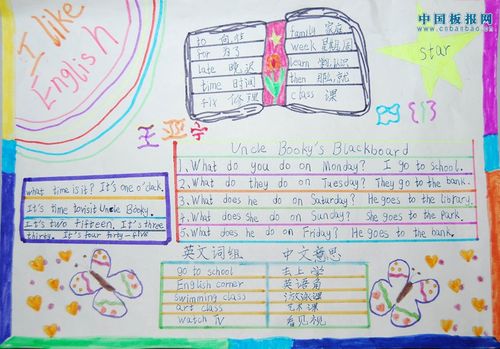 中国板报网
www.cnbanbao.cn
I like
English
star
to 向,往
for 为了
late 晚,迟
time 时间
fix 修理
family 家庭
week 星期,周
learn 学习,认识
then 那么,就
class 课
王 亚 宁
Uncle Booky's Blackboard
1. What do you do on Monday? I go to school.
2. What do they do on Tuesday? They go to the bank.
3. What does he do on Saturday? He goes to the library.
4. What does she do on Sunday? She goes to the park.
5. What does he do on Friday? He goes to the bank.
what time is it? It's one o'clock.
It's time to visit Uncle Booky.
It's two fifteen. It's three
thirty. It's four forty-five
英文词组 中文意思
go to school 去上学
English corner 英语角
swimming class 游泳课
art class 艺术课
watch TV 看电视